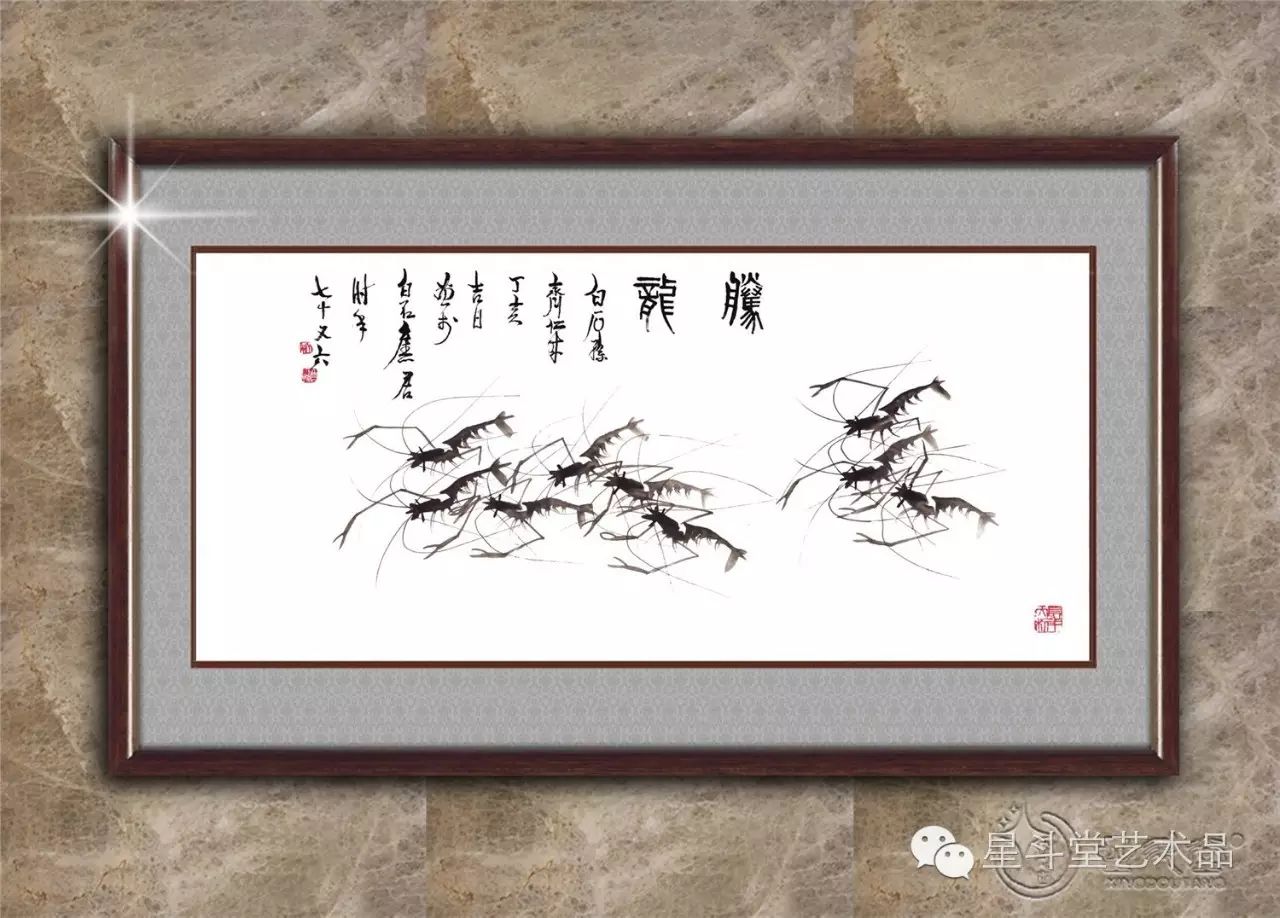 騰
龍
白石孫
齊仁
丁亥
吉日
於
白石舊居
时年
七十又六
星斗堂艺术品
XINGDOUTANG